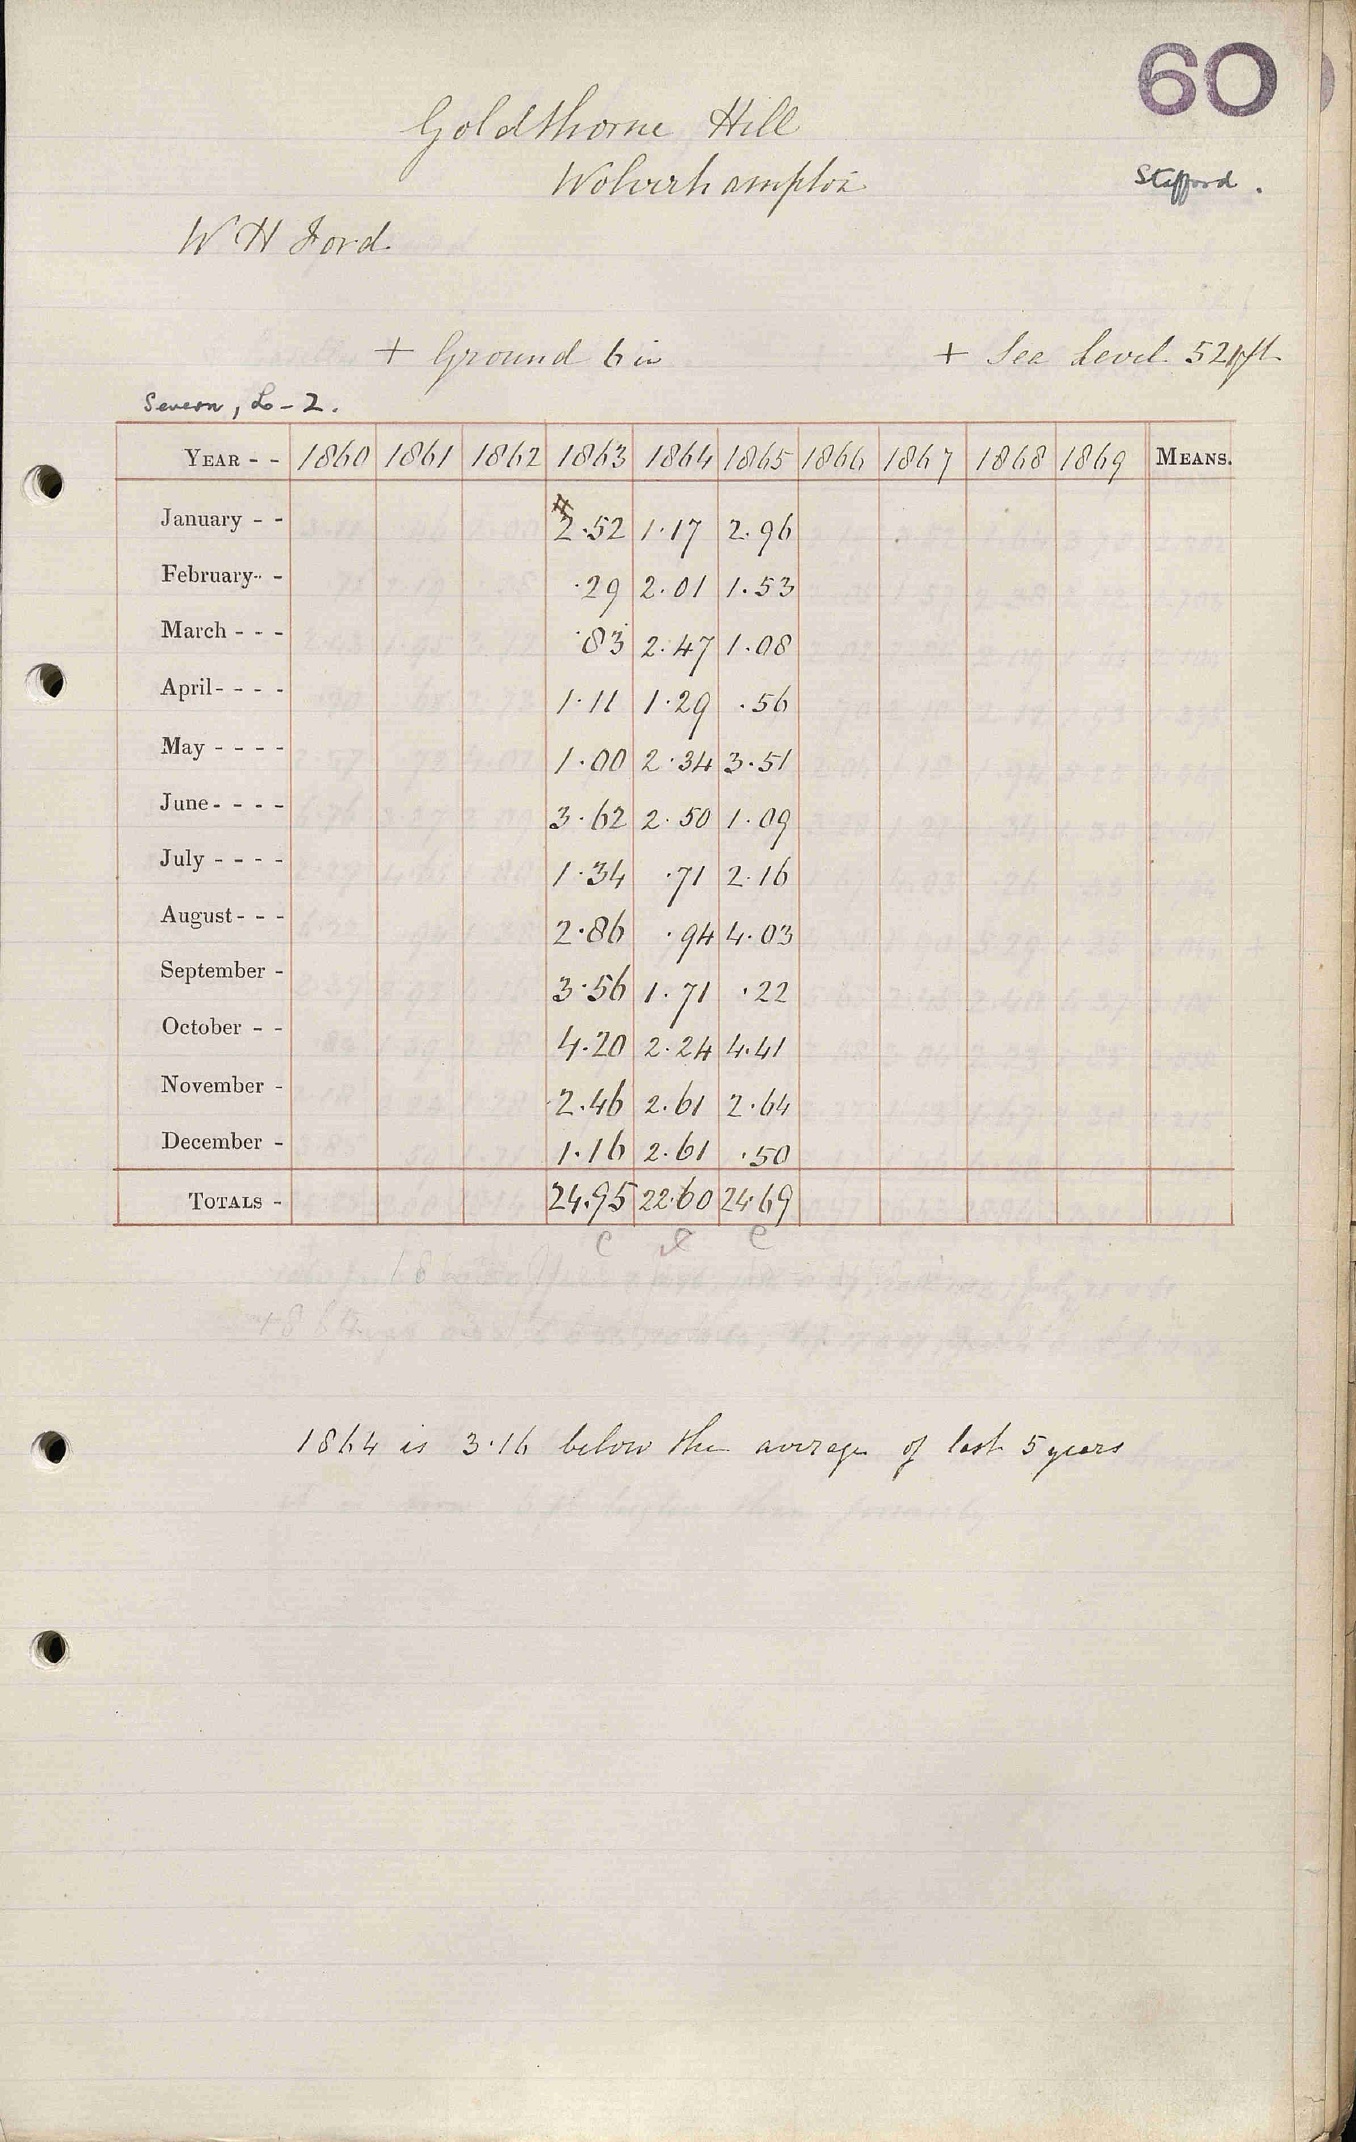 60
Goldthorne Hill
Wolverhampton
Stafford.
W H Ford
+ Ground 6 in
+ Sea Level 521 ft
Severn, L-2.
YEAR - - 1860 1861 1862 1863 1864 1865 1866 1867 1868 1869 MEANS.
January - - 2.52 1.17 2.96
February - - .29 2.01 1.53
March - - - .83 2.47 1.08
April - - - - 1.11 1.29 .56
May - - - - 1.00 2.34 3.51
June - - - - 3.62 2.50 1.09
July - - - - 1.34 .71 2.16
August - - - 2.86 .94 4.03
September - 3.56 1.71 .22
October - - 4.20 2.24 4.41
November - 2.46 2.61 2.64
December - 1.16 2.61 .50
TOTALS - 24.95 22.60 24.69
1864 is 3.16 below the average of last 5 years